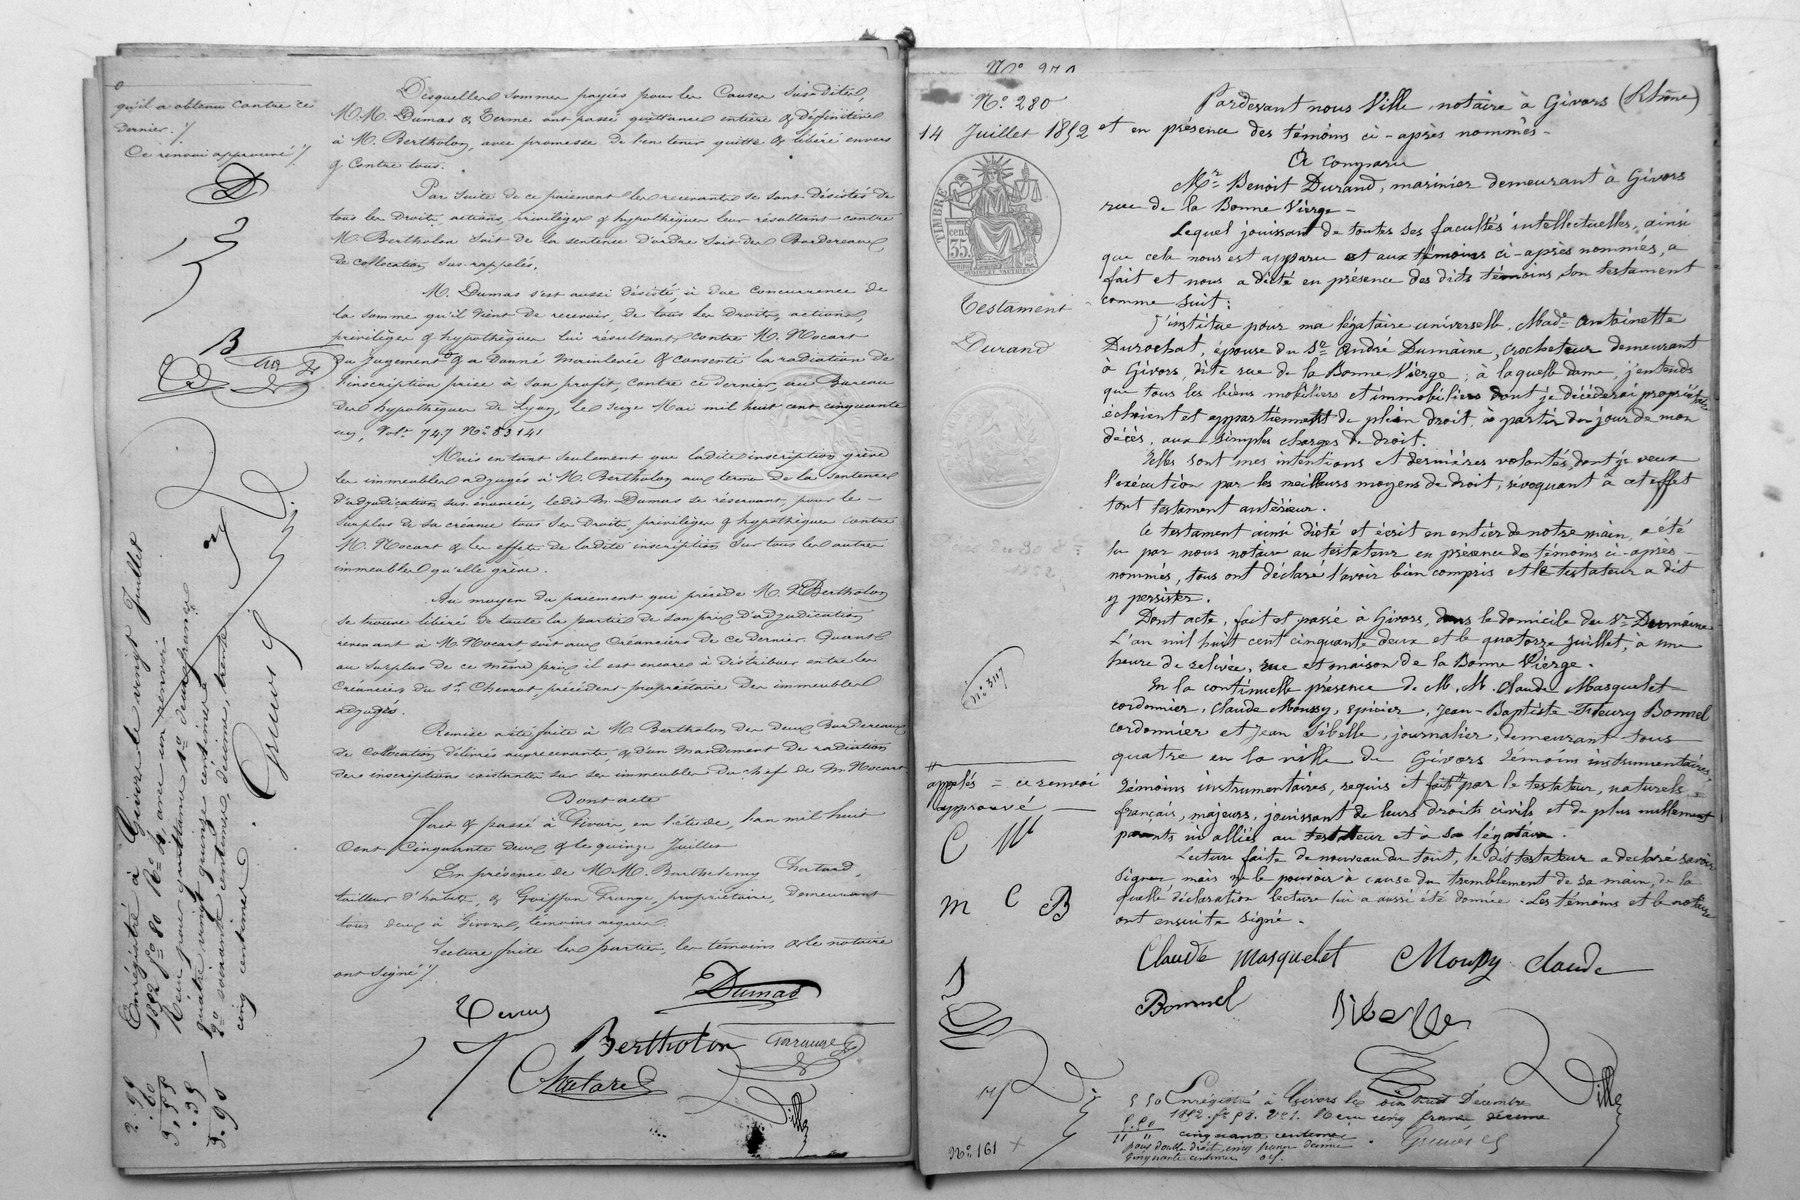 qu'il a obtenu contre ce
dernier ./
Ce renvoi approuvé ./
D
B
Desquelles sommes payées pour les Causes Susdites,
M.M. Dumas & Terme ont passé quittance entière & définitive
à M. Bertholon, avec promesse de l'en tenir quitte & libéré envers
& contre tous.
Par Suite de ce paiement les recevants se sont désistés de
tous les Droits, actions, privilèges & hypothèques leur résultant contre
M. Bertholon soit de la sentence d'ordre soit des Bordereaux
de collocation sus-rappelés.
M. Dumas s'est aussi désisté, à due concurrence de
la somme qu'il vient de recevoir, de tous ses Droits, actions,
privilèges & hypothèques lui résultant contre M. Nocart
du Jugement & a Donné mainlevée & consenti la radiation de
l'inscription prise à son profit, contre ce dernier, au Bureau
des hypothèques de Lyon, le seize Mai mil huit cent cinquante
un, Vol. 747 N° 53141
Mais en tant seulement que ladite inscription grève
les immeubles adjugés à M. Bertholon aux termes de la sentence
d'adjudication sus énoncée, ledit M. Dumas se réservant, pour le
surplus de sa créance tous ses Droits, privilèges & hypothèques contre
M. Nocart & les effets de ladite inscription sur tous les autres
immeubles qu'elle grève.
Au moyen du paiement qui précède M. Bertholon
se trouve libéré de toute la partie de son prix d'adjudication
revenant à M. Nocart soit aux Créanciers de ce Dernier. Quant
au surplus de ce même prix il est encore à distribuer entre les
Créanciers du Sr. Chevrot précédent propriétaire des immeubles
adjugés.
Remise a été faite à M. Bertholon des deux Bordereaux
de Collocation délivrés aux recevants, & d'un mandement de radiation
des inscriptions existantes sur ses immeubles du chef de M. Nocart
Dont acte
Fait & passé à Givors, en l'étude, l'an mil huit
Cent Cinquante Deux & le quinze Juillet
En présence de M.M. Barthelemy Chatard,
tailleur d'habits, & Goiffon Grange, propriétaire, Demeurant
tous deux à Givors, témoins requis.
Lecture faite les parties, les témoins & le notaire
ont signé ./
Terme Dumas
Bertholon
Chatard
Ville
Enregistré à Givors le vingt Juillet
1852 f° 80 R° 4, avec un renvoi
Reçu pour quittance 1° deux francs
quatre vingt quinze centimes
2° soixante centimes, décime, trente
cinq centimes.
2.95
.60
3.55
.35
3.90
N° 280
14 Juillet 1852
TIMBRE
cent
35
Testament
Durand
n° 347
appelés = ce renvoi
approuvé
C M
M C B
J
N° 161
Pardevant nous Ville, notaire à Givors (Rhône)
et en présence des témoins ci-après nommés -
A comparu
Mr. Benoit Durand, marinier demeurant à Givors
rue de la Bonne Vierge -
Lequel jouissant de toutes ses facultés intellectuelles, ainsi
que cela nous est apparu et aux témoins ci-après nommés, a
fait et nous a dicté en présence des dits témoins son testament
comme suit :
J'institue pour ma légataire universelle, Made. Antoinette
Durochat, épouse du Sr. André Dumaine, crocheteur demeurant
à Givors, dite rue de la Bonne Vierge ; à laquelle dame, j'entends
que tous les biens mobiliers et immobiliers dont je décéderai propriétaire
échoient et appartiennent de plein droit, à partir du jour de mon
décès, aux simples charges de droit.
Telles sont mes intentions et dernières volontés, dont je veux
l'exécution par les meilleurs moyens de droit, révoquant à cet effet
tout testament antérieur.
Ce testament ainsi dicté et écrit en entier de notre main, a été
lu par nous notaire au testateur en présence des témoins ci-après
nommés, tous ont déclaré l'avoir bien compris et le testateur a dit
y persister.
Dont acte, fait et passé à Givors, dans le domicile du Sr. Dumaine
L'an mil huit cent cinquante deux et le quatorze juillet, à une
heure de relevée, rue et maison de la Bonne Vierge.
En la continuelle présence de M.M. Claude Masquelet
cordonnier, Claude Moussy, épicier, Jean-Baptiste Fleury Bonnel
cordonnier et Jean Sibelle, journalier, demeurant tous
quatre en la ville de Givors témoins instrumentaires,
témoins instrumentaires, requis et faits par le testateur, naturels
français, majeurs, jouissant de leurs droits civils et de plus nullement
parents ni alliés au testateur et à sa légataire.
Lecture faite de nouveau du tout, le dit testateur a déclaré savoir
signer mais ne le pouvoir à cause du tremblement de sa main, de la
quelle déclaration lecture lui a aussi été donnée. Les témoins et le notaire
ont ensuite signé.
Claude Masquelet Moussy Claude
Bonnel Sibelle
Ville
Enregistré à Givors le Décembre
1852. Reçu cinq francs décime
cinquante centimes
pour double droit cinq francs décime
cinquante centimes